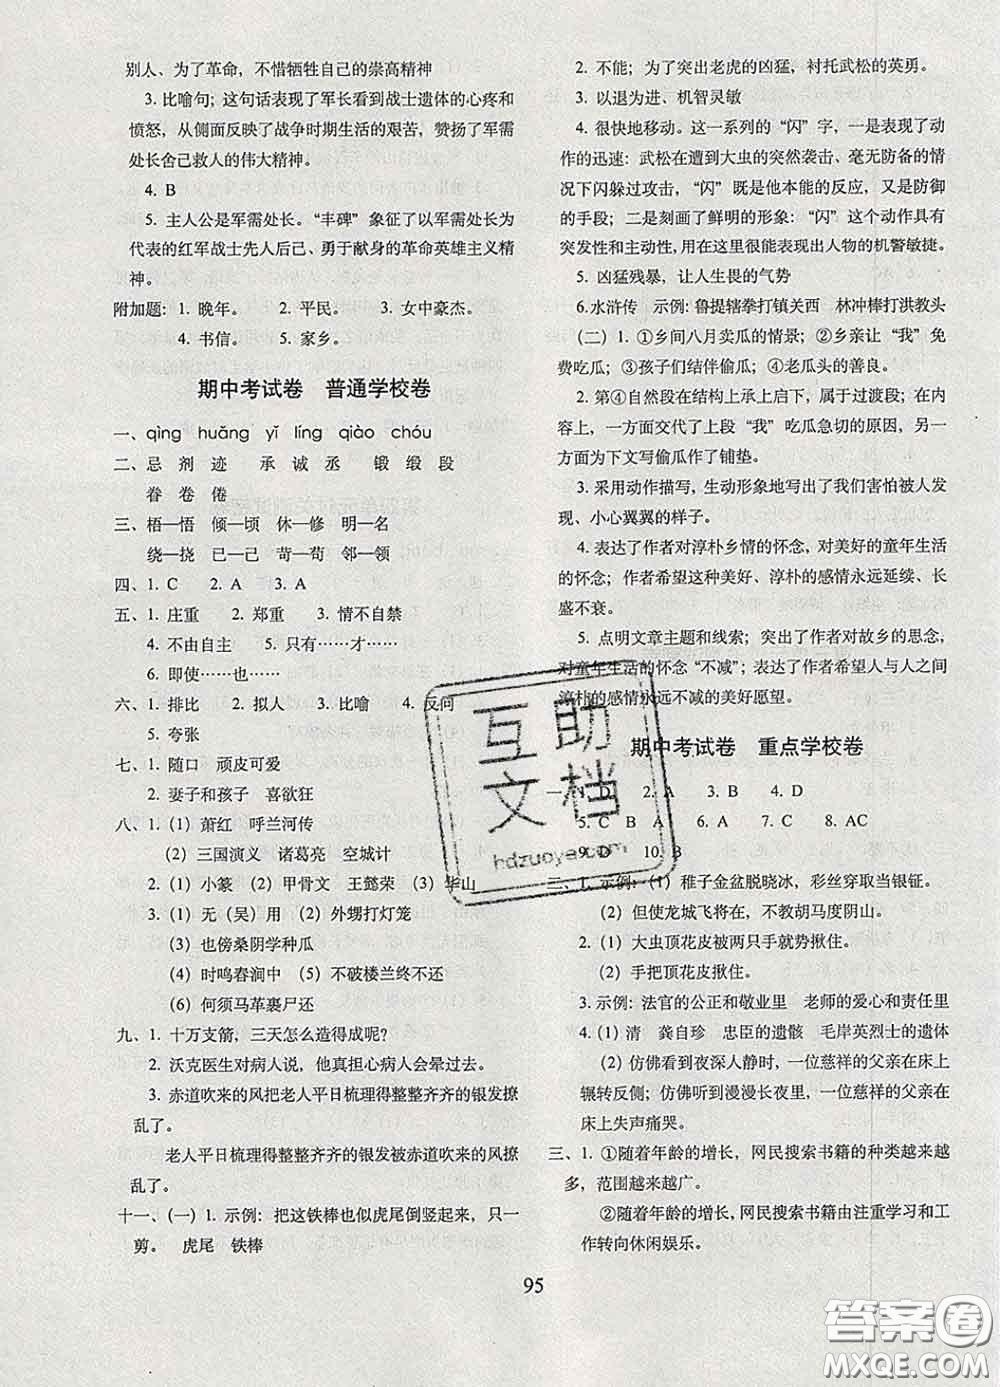 别人、为了革命，不惜牺牲自己的崇高精神
3. 比喻句；这句话表现了军长看到战士遗体的心疼和
愤怒，从侧面反映了战争时期生活的艰苦，赞扬了军需
处长舍己救人的伟大精神。
4. B
5. 主人公是军需处长。“丰碑”象征了以军需处长为
代表的红军战士先人后己、勇于献身的革命英雄主义精
神。
附加题：1. 晚年。 2. 平民。 3. 女中豪杰。
4. 书信。 5. 家乡。
期中考试卷 普通学校卷
一、qìng huǎng yǐ líng qiào chóu
二、忌 剂 迹 承 诚 丞 锻 缎 段
眷 卷 倦
三、梧—悟 倾—顷 休—修 明—名
绕—挠 已—己 苛—苟 邻—领
四、1. C 2. A 3. A
五、1. 庄重 2. 郑重 3. 情不自禁
4. 不由自主 5. 只有……才……
6. 即使……也……
六、1. 排比 2. 拟人 3. 比喻 4. 反问
5. 夸张
七、1. 随口 顽皮可爱
2. 妻子和孩子 喜欲狂
八、1. (1) 萧红 呼兰河传
(2) 三国演义 诸葛亮 空城计
2. (1) 小篆 (2) 甲骨文 王懿荣 (3) 华山
3. (1) 无（吴）用 (2) 外甥打灯笼
(3) 也傍桑阴学种瓜
(4) 时鸣春涧中 (5) 不破楼兰终不还
(6) 何须马革裹尸还
九、1. 十万支箭，三天怎么造得成呢？
2. 沃克医生对病人说，他真担心病人会晕过去。
3. 赤道吹来的风把老人平日梳理得整整齐齐的银发撩
乱了。
老人平日梳理得整整齐齐的银发被赤道吹来的风撩
乱了。
十一、（一）1. 示例：把这铁棒也似虎尾倒竖起来，只一
剪。 虎尾 铁棒
2. 不能；为了突出老虎的凶猛，衬托武松的英勇。
3. 以退为进、机智灵敏
4. 很快地移动。这一系列的“闪”字，一是表现了动
作的迅速：武松在遭到大虫的突然袭击、毫无防备的情
况下闪躲过攻击，“闪”既是他本能的反应，又是防御
的手段；二是刻画了鲜明的形象：“闪”这个动作具有
突发性和主动性，用在这里很能表现出人物的机警敏捷。
5. 凶猛残暴，让人生畏的气势
6. 水浒传 示例：鲁提辖拳打镇关西 林冲棒打洪教头
（二）1. ①乡间八月卖瓜的情景；②乡亲让“我”免
费吃瓜；③孩子们结伴偷瓜；④老瓜头的善良。
2. 第④自然段在结构上承上启下，属于过渡段；在内
容上，一方面交代了上段“我”吃瓜急切的原因，另一
方面为下文写偷瓜作了铺垫。
3. 采用动作描写，生动形象地写出了我们害怕被人发
现、小心翼翼的样子。
4. 表达了作者对淳朴乡情的怀念，对美好的童年生活
的怀念；作者希望这种美好、淳朴的感情永远延续、长
盛不衰。
5. 点明文章主题和线索；突出了作者对故乡的思念，
对童年生活的怀念“不减”；表达了作者希望人与人之间
淳朴的感情永远不减的美好愿望。
期中考试卷 重点学校卷
一、1. D 2. A 3. B 4. D
5. C B A 6. A 7. C 8. AC
9. D 10. B
二、1. 示例：(1) 稚子金盆脱晓冰，彩丝穿取当银钲。
(2) 但使龙城飞将在，不教胡马度阴山。
2. (1) 大虫顶花皮被两只手就势揪住。
(2) 手把顶花皮揪住。
3. 示例：法官的公正和敬业里 老师的爱心和责任里
4. (1) 清 龚自珍 忠臣的遗骸 毛岸英烈士的遗体
(2) 仿佛看到夜深人静时，一位慈祥的父亲在床上
辗转反侧；仿佛听到漫漫长夜里，一位慈祥的父亲在
床上失声痛哭。
三、1. ①随着年龄的增长，网民搜索书籍的种类越来越
多，范围越来越广。
②随着年龄的增长，网民搜索书籍由注重学习和工
作转向休闲娱乐。
95
互助
文档
hdzuoye.com
答案圈
MXQE.COM